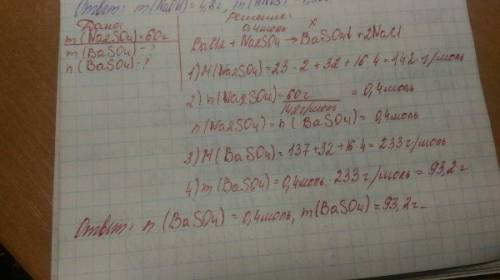 Ответ: m(
Дано:
m(Na2SO4)=60г
m(BaSO4)-?
n(BaSO4)-?
Решение:
0,4моль x
BaCl2 + Na2SO4 → BaSO4↓ + 2NaCl
1) M(Na2SO4) = 23·2 + 32 + 16·4 = 142 г/моль
2) n(Na2SO4) = 60г / г/моль = 0,4моль
n(Na2SO4) = n(BaSO4) = 0,4моль
3) M(BaSO4) = 137 + 32 + 16·4 = 233 г/моль
4) m(BaSO4) = 0,4моль · 233 г/моль = 93,2 г
Ответ: n(BaSO4) = 0,4моль, m(BaSO4) = 93,2г